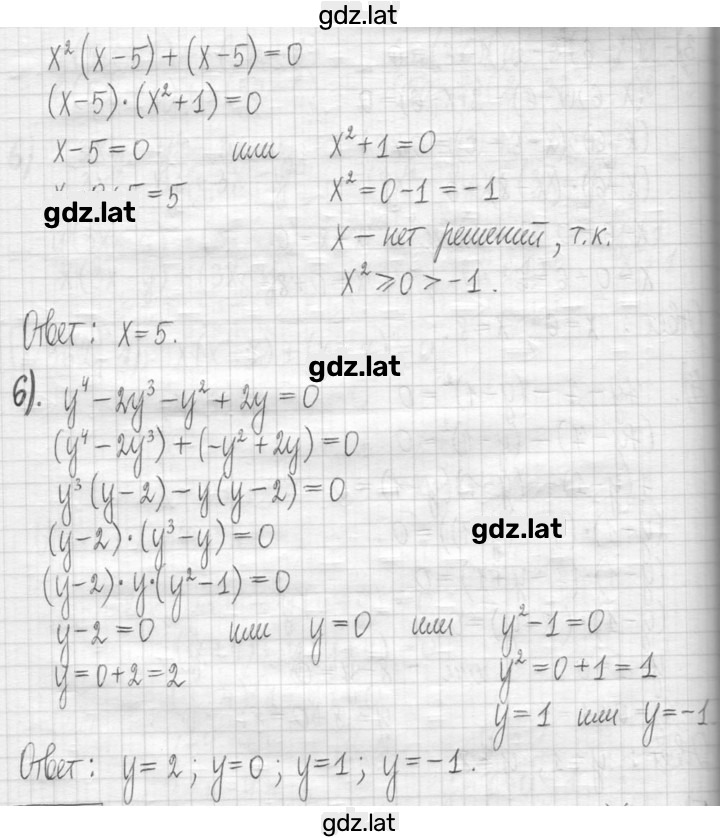 gdz.lat
x²(x-5)+(x-5)=0
(x-5)·(x²+1)=0
x-5=0 или x²+1=0
=5 x²=0-1=-1
gdz.lat
x – нет решений, т.к.
x²⩾0>-1.
Ответ: x=5.
gdz.lat
б). y⁴-2y³-y²+2y=0
(y⁴-2y³)+(-y²+2y)=0
y³(y-2)-y(y-2)=0
gdz.lat
(y-2)·(y³-y)=0
(y-2)·y·(y²-1)=0
y-2=0 или y=0 или y²-1=0
y=0+2=2 y²=0+1=1
y=1 или y=-1
Ответ: y=2; y=0; y=1; y=-1.
gdz.lat